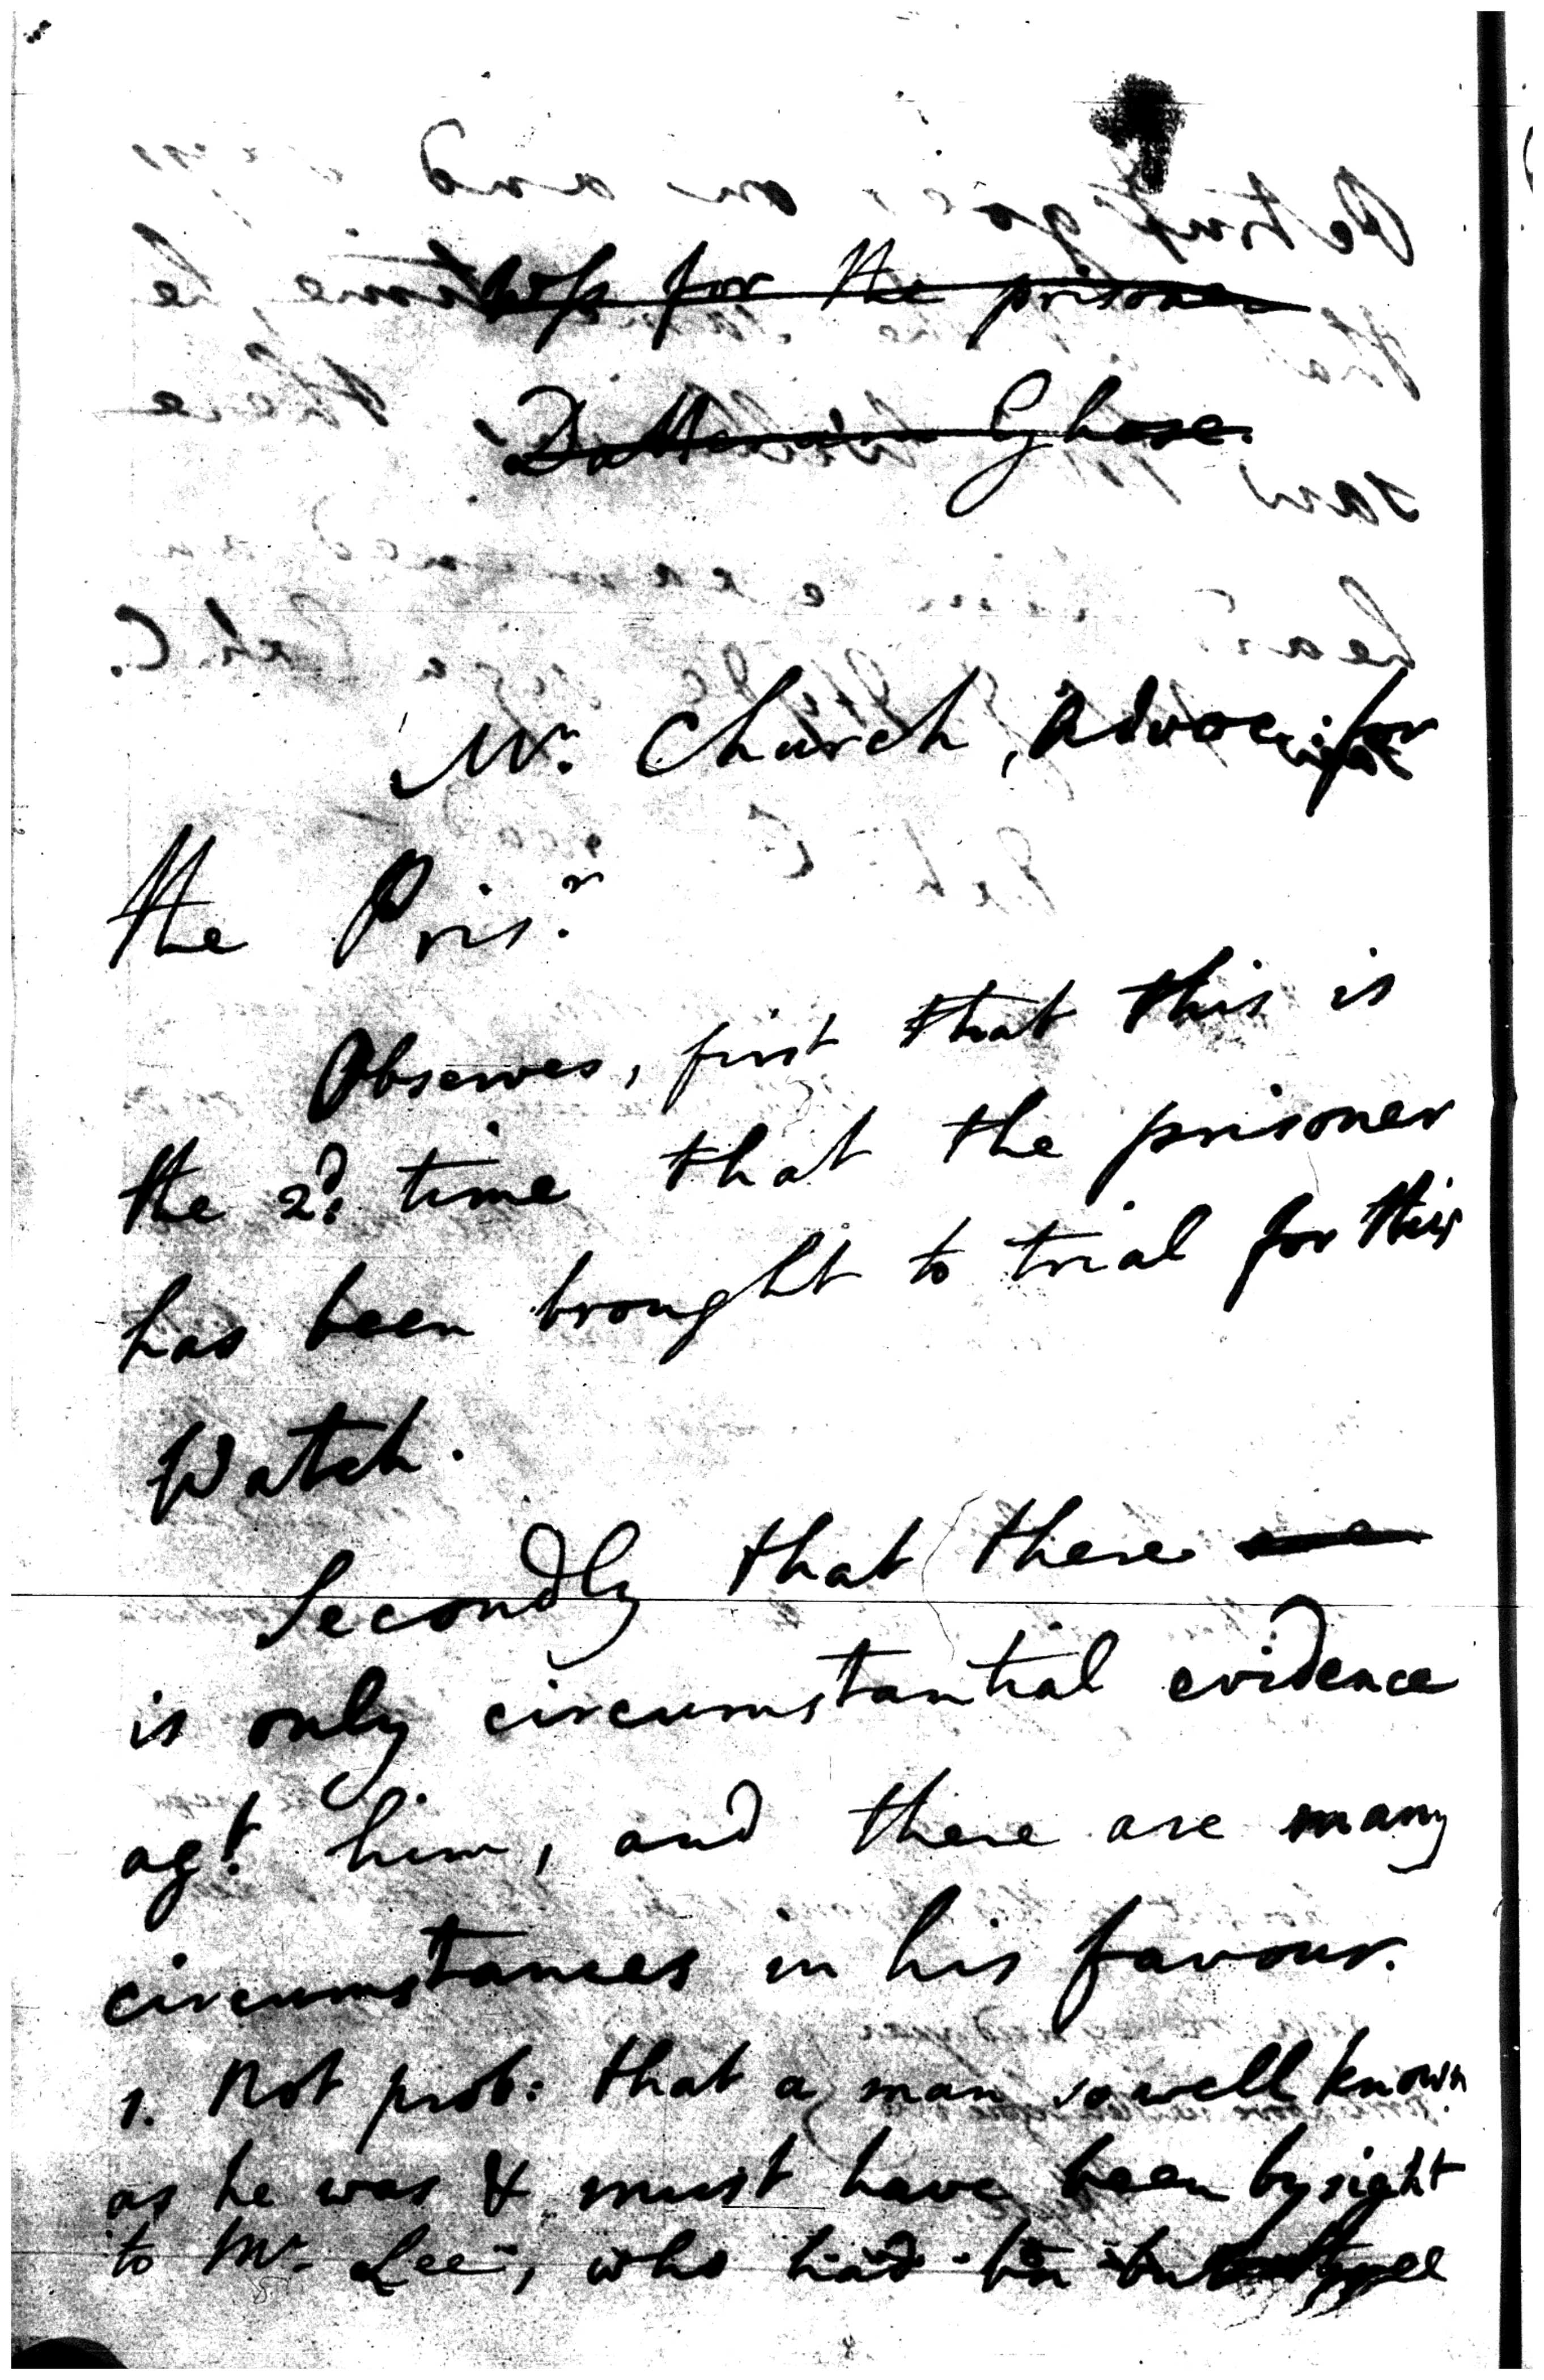 Wss for the prisoner
Ghose.
Mr. Church, Advoc: for
the Pris.r
Observes, first that this is
the 2d. time that the prisoner
has been brought to trial for this
Watch.
Secondly that there
is only circumstantial evidence
agt. him, and there are many
circumstances in his favour.
1. Not prob: that a man so well known
as he was & must have been by sight
to Mr. Lee, who had